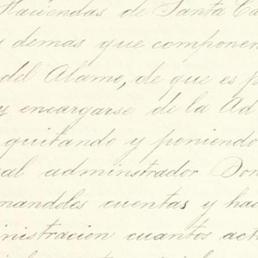 Haciendas de Santa Ca
y demas que componen
del Alamo, de que es p
y encargarse de la Ad
quitando y poniendo
al adminstrador Don
mandoles cuentas y hac
nistracion cuantos act